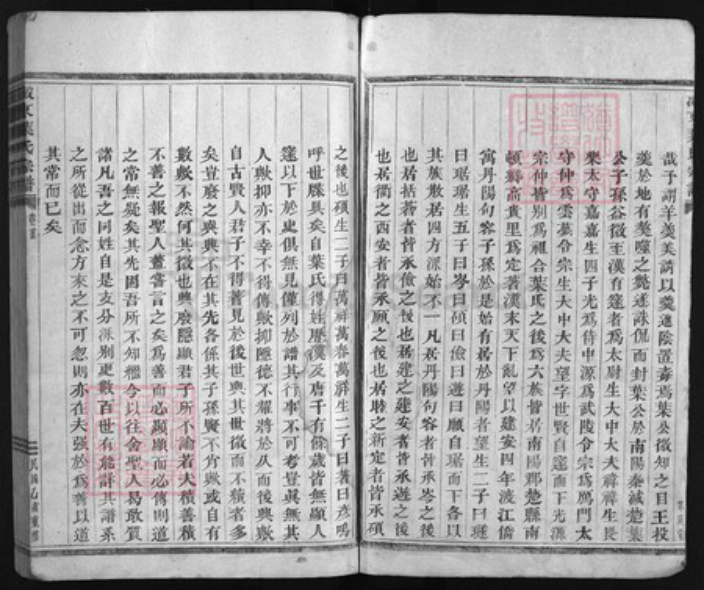 哉子謂羊羹美請以羹進陰置毒焉葉公微知之目王投
羹於地有獒噬之斃遂誅侃而封葉公於南陽秦滅楚葉
公子孫谷徵至漢有達者爲太尉生大中大夫禪禪生艮
樂太守嘉嘉生四子光爲侍中源爲武陵令宗爲鴈門太
守仲爲雲葉令宗生大中大夫望字世賢自達而下光源
宗仲皆別爲祖合葉氏之後爲六族皆居南陽郡楚縣南
頓鄉高貴里爲定著漢末天下亂望以建安四年渡江僑
寓丹陽句容子孫於是始有居於丹陽者望生二子曰
曰琚琚生五子曰岑曰碩曰儉曰遊曰願自琚而下各以
其族散居四方源始不一凡居丹陽句容者皆承岑之後
也居括蒼者皆承儉之後也居建之建安者皆承遊之後
也居衢之西安者皆承願之後也居睦之新定者皆承碩
之後也碩生二子曰萬祥萬春萬群生二子曰著曰彥鳴
呼世牒具矣自葉氏得姓歷漢及唐千有餘歲皆無顯人
達以下於史俱無見僅列於譜其行事不可考豈眞無其
人歟抑亦不幸不得傳歟抑隱德不耀將於从而後興歟
自古賢人君子不得著見於後世與其世微而不積者多
矣豈廢之與興不在其先各係其子孫賢不肖歟或自有
數歟不然何其微也興廢隱顯君子所不論若夫積善積
不善之報聖人蓋嘗言之矣爲善而必顯顯而必傳則道
之常無疑矣其先因吾所不知繼今以往舍聖人曷敢質
諸凡吾之同姓自是支分派別更數百世有能詳其譜系
之所從出而念方來之不可忽則亦在夫強於爲善以道
其常而已矣
葉氏宗譜
卷首
民國乙亥重修